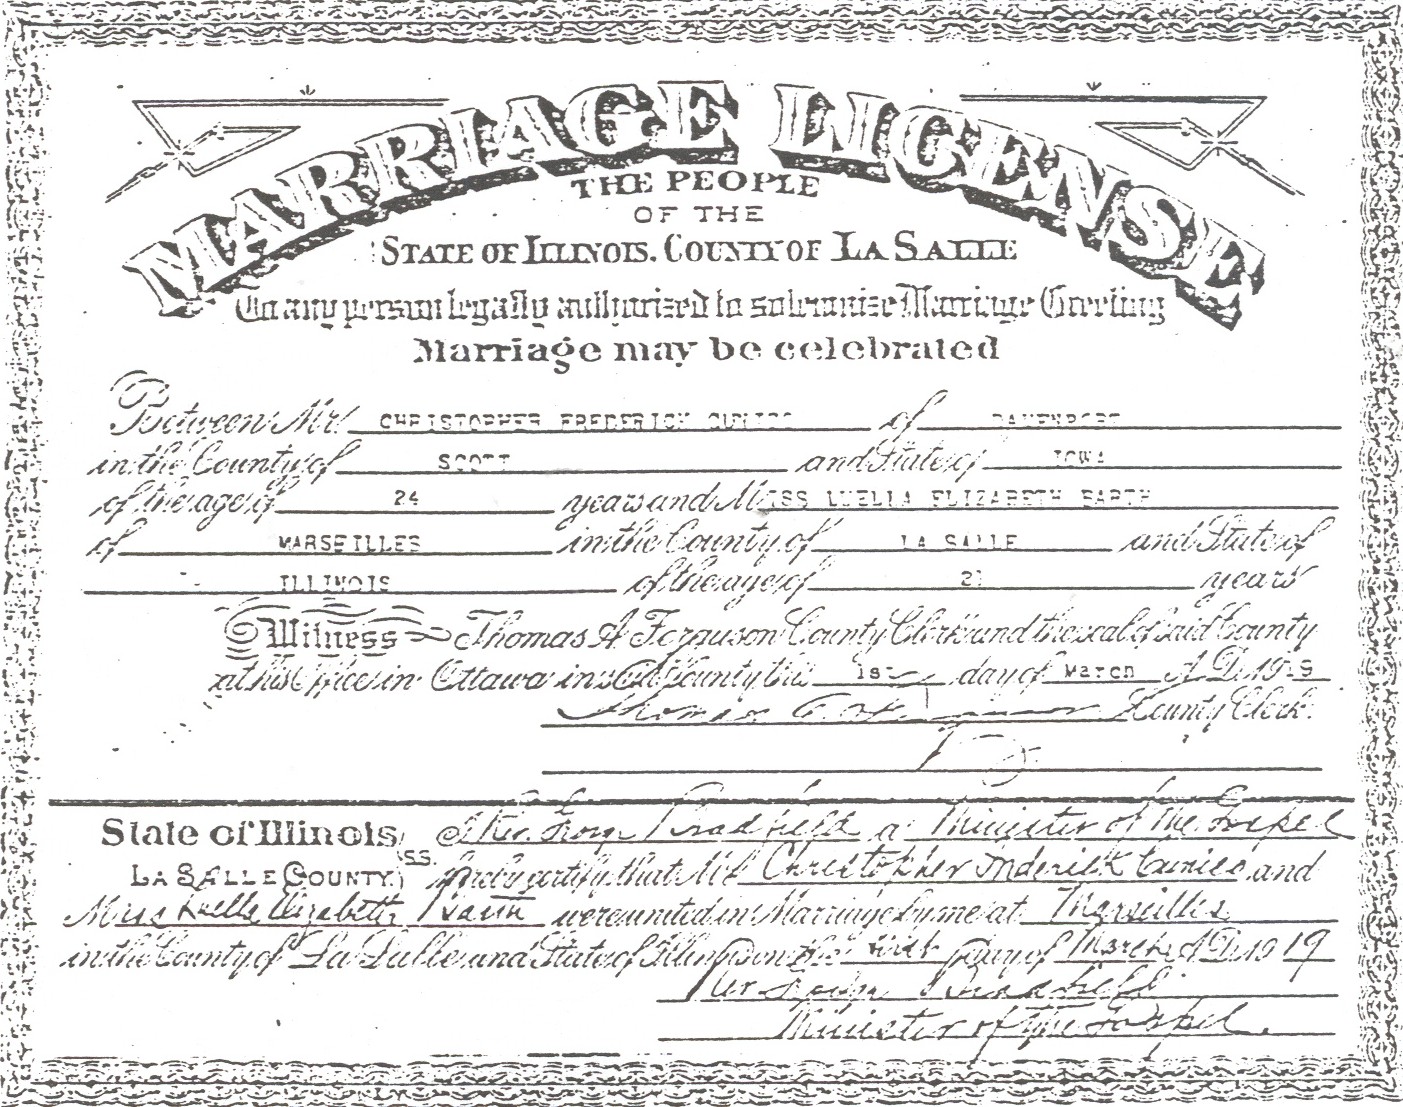 MARRIAGE LICENSE
THE PEOPLE
OF THE
STATE OF ILLINOIS. COUNTY OF LA SALLE
To any person legally authorized to solemnize Marriage Greeting
Marriage may be celebrated
Between Mr. CHRISTOPHER FREDERICK of DAVENPORT
in the County of SCOTT and State of IOWA
of the age of 24 years and MISS LUELLA ELIZABETH BARTH
of MARSEILLES in the County of LA SALLE and State of
ILLINOIS of the age of 21 years
Witness Thomas A. Ferguson County Clerk and the seal of said County
at his Office in Ottawa in said County this 1st day of March A.D. 1919
County Clerk.
State of Illinois I Rev. Bradfield a Minister of the Gospel
LA SALLE COUNTY. } SS. hereby certify that Mr. Christopher Frederick and
Miss Luella Elizabeth Barth were united in Marriage by me at Marseilles
in the County of La Salle and State of Illinois on the first day of March A.D. 1919
Rev. Bradfield
Minister of the Gospel.